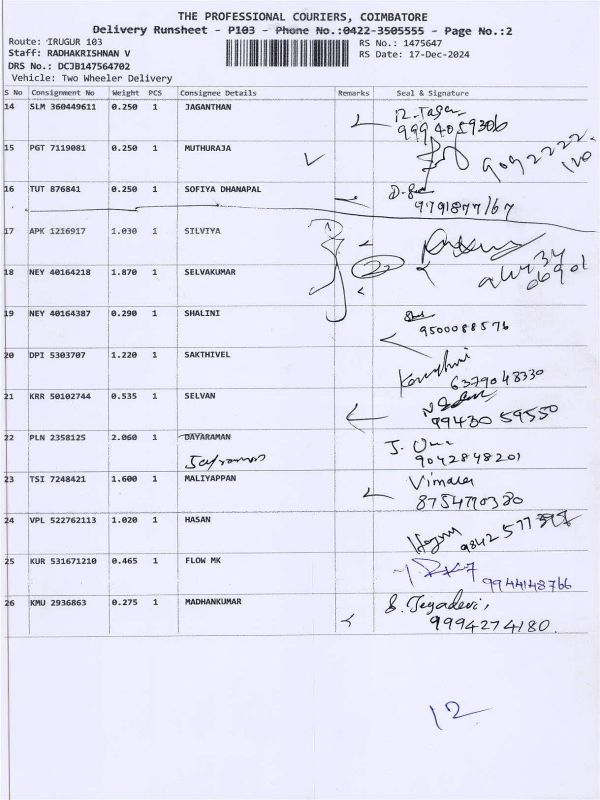 THE PROFESSIONAL COURIERS, COIMBATORE
Delivery Runsheet - P103 - Phone No.:0422-3505555 - Page No.:2
Route: IRUGUR 103 RS No.: 1475647
Staff: RADHAKRISHNAN V RS Date: 17-Dec-2024
DRS No.: DCJB147564702
Vehicle: Two Wheeler Delivery
S No Consignment No Weight PCS Consignee Details Remarks Seal & Signature
14 SLM 360449611 0.250 1 JAGANTHAN
9994059306
15 PGT 7119081 0.250 1 MUTHURAJA
16 TUT 876841 0.250 1 SOFIYA DHANAPAL
9791877167
17 APK 1216917 1.030 1 SILVIYA
18 NEY 40164218 1.870 1 SELVAKUMAR 2
19 NEY 40164387 0.290 1 SHALINI
9500088576
20 DPI 5303707 1.220 1 SAKTHIVEL
6379048330
21 KRR 50102744 0.535 1 SELVAN
99430 59550
22 PLN 2358125 2.060 1 DAYARAMAN J. Uma
Jayraman 9042848201
23 TSI 7248421 1.600 1 MALIYAPPAN Vimala
8754770380
24 VPL 522762113 1.020 1 HASAN
25 KUR 531671210 0.465 1 FLOW MK
9944148766
26 KMU 2936863 0.275 1 MADHANKUMAR S. Jeyadevi,
9994274180
12